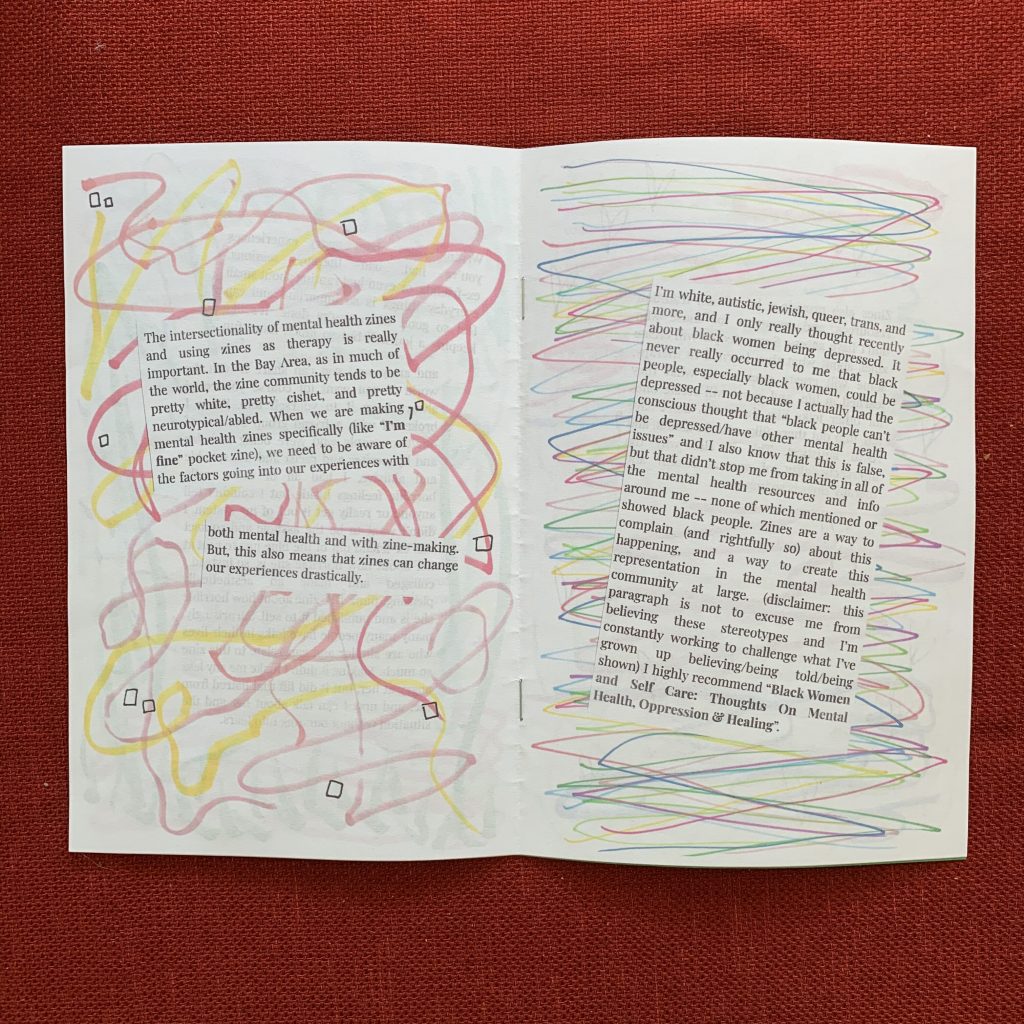 The intersectionality of mental health zines
and using zines as therapy is really
important. In the Bay Area, as in much of
the world, the zine community tends to be
pretty white, pretty cishet, and pretty
neurotypical/abled. When we are making
mental health zines specifically (like “I’m
fine” pocket zine), we need to be aware of
the factors going into our experiences with
both mental health and with zine-making.
But, this also means that zines can change
our experiences drastically.
I’m white, autistic, jewish, queer, trans, and
more, and I only really thought recently
about black women being depressed. it
never really occurred to me that black
people, especially black women, could be
depressed -- not because I actually had the
conscious thought that “black people can’t
be depressed/have other mental health
issues” and I also know that this is false,
but that didn’t stop me from taking in all of
the mental health resources and info
around me -- none of which mentioned or
showed black people. Zines are a way to
complain (and rightfully so) about this
happening, and a way to create this
representation in the mental health
community at large. (disclaimer: this
paragraph is not to excuse me from
believing these stereotypes and I’m
constantly working to challenge what I’ve
grown up believing/being told/being
shown) I highly recommend “Black Women
and Self Care: Thoughts On Mental
Health, Oppression & Healing”.